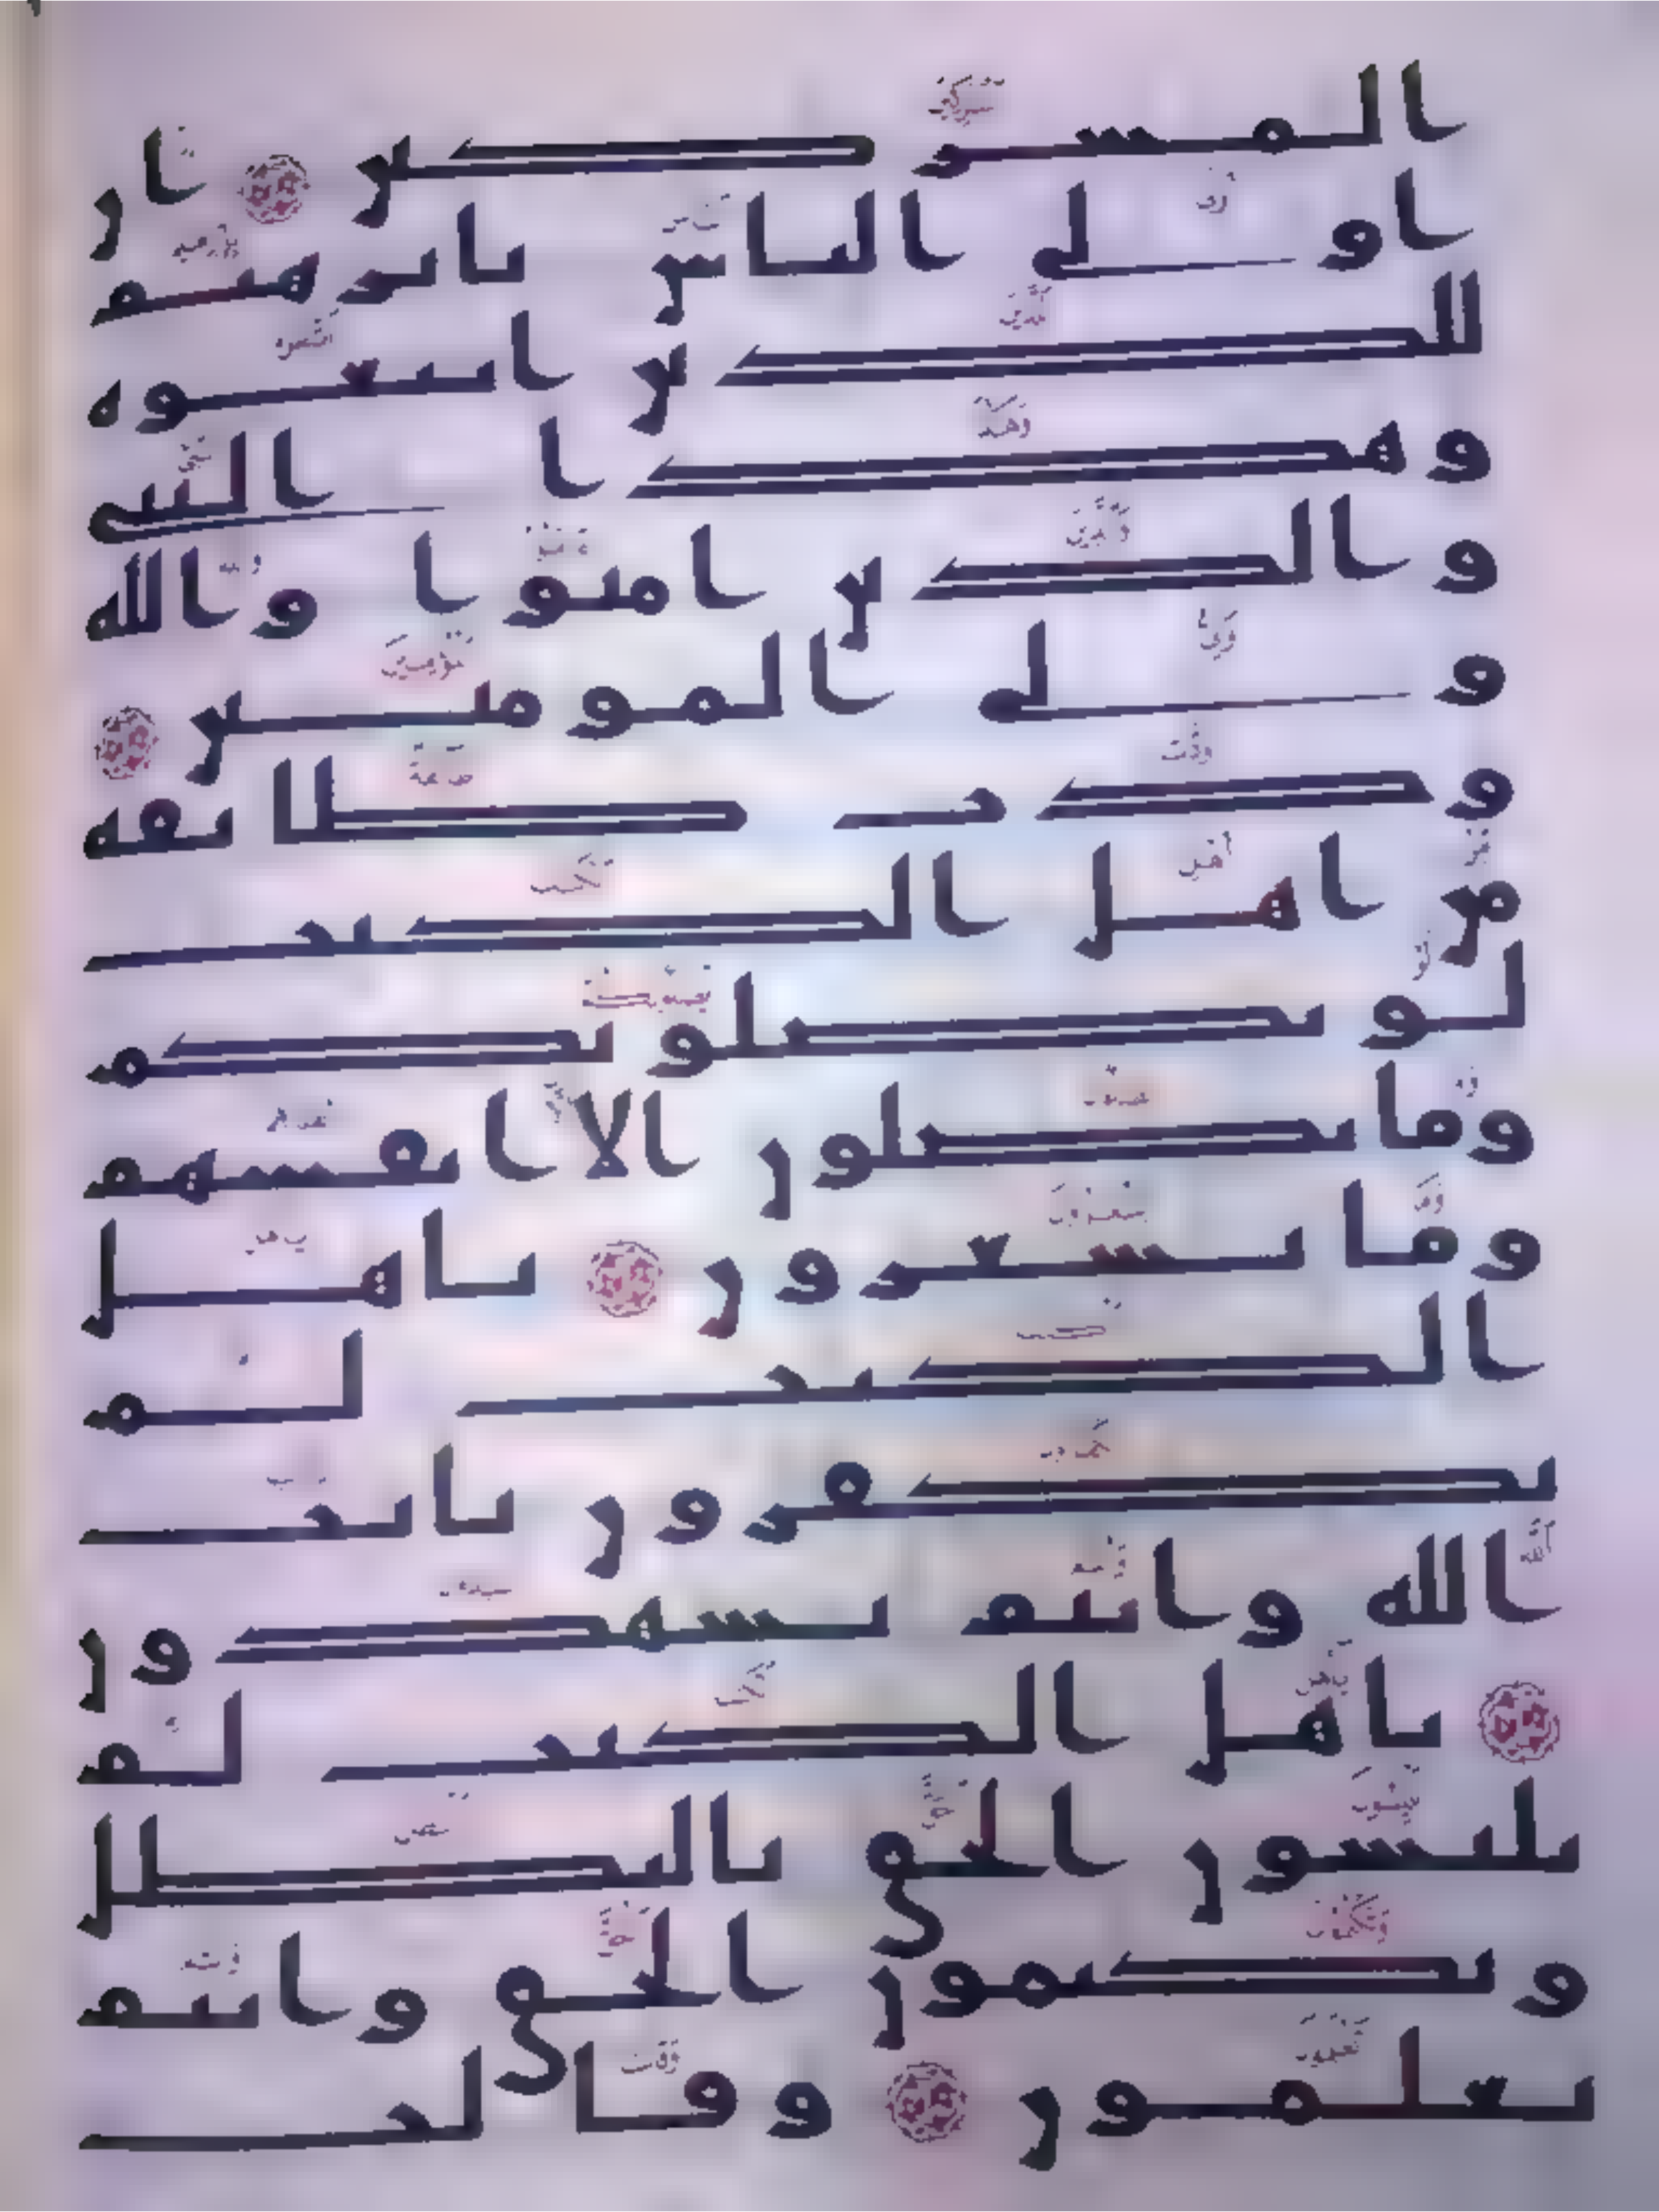 المشركين ان
اولى الناس بابرهيم
للذين اتبعوه
وهذا النبي
والذين امنوا والله
ولي المومنين
ودت طائفة
من اهل الكتب
لو يضلونكم
وما يضلون الا انفسهم
وما يشعرون ياهل
الكتب لم
تكفرون بايت
الله وانتم تشهدون
ياهل الكتب لم
تلبسون الحق بالبطل
وتكتمون الحق وانتم
تعلمون وقالت